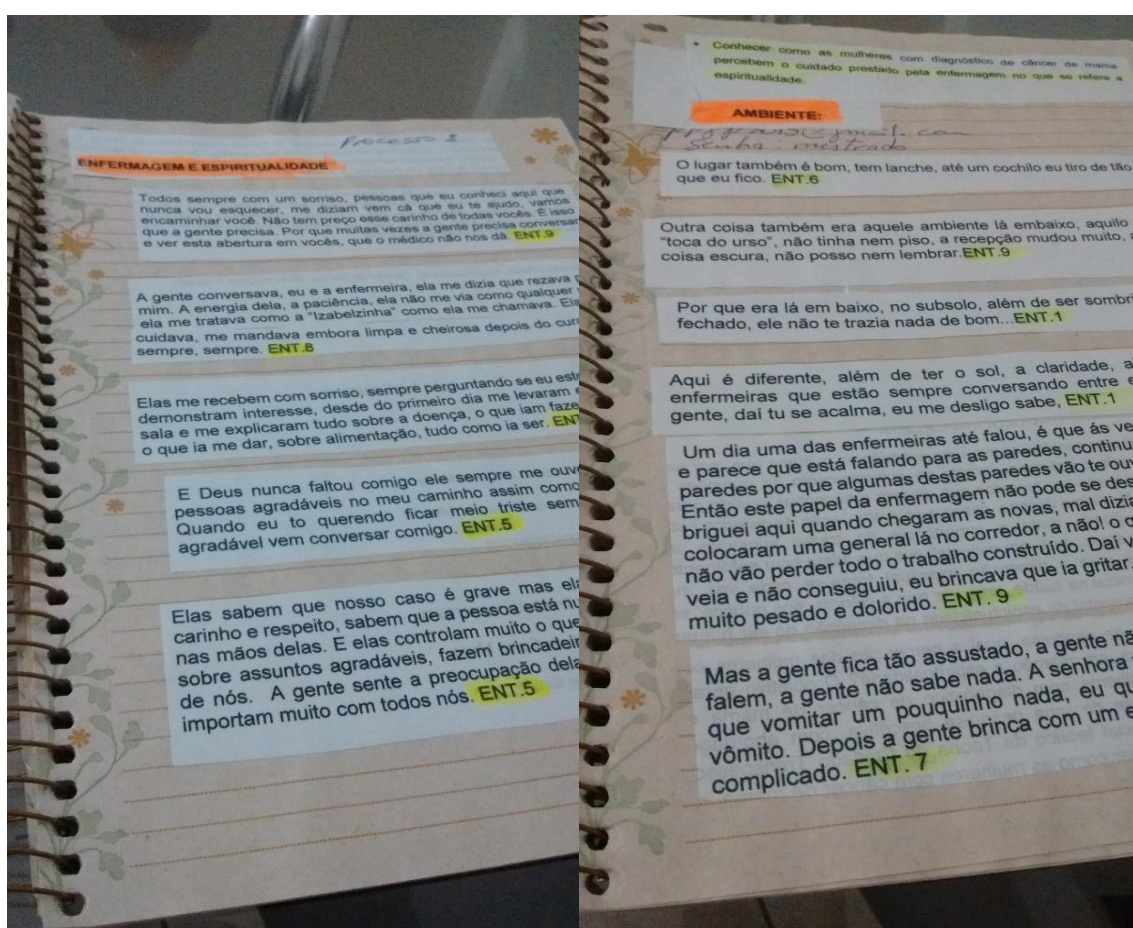 Processo 2
ENFERMAGEM E ESPIRITUALIDADE
Todos sempre com um sorriso, pessoas que eu conheci aqui que
nunca vou esquecer, me diziam vem cá que eu te ajudo, vamos
encaminhar você. Não tem preço esse carinho de todas vocês. É isso
que a gente precisa. Por que muitas vezes a gente precisa conversar
e ver esta abertura em vocês, que o médico não nos dá. ENT.9
A gente conversava, eu e a enfermeira, ela me dizia que rezava
mim. A energia dela, a paciência, ela não me via como qualquer
ela me tratava como a "Izabelzinha" como ela me chamava. Ela
cuidava, me mandava embora limpa e cheirosa depois do
sempre, sempre. ENT.8
Elas me recebem com sorriso, sempre perguntando se eu
demonstram interesse, desde do primeiro dia me levaram
sala e me explicaram tudo sobre a doença, o que iam
o que ia me dar, sobre alimentação, tudo como ia ser.
E Deus nunca faltou comigo ele sempre me
pessoas agradáveis no meu caminho assim como
Quando eu to querendo ficar meio triste
agradável vem conversar comigo. ENT.5
Elas sabem que nosso caso é grave mas
carinho e respeito, sabem que a pessoa está
nas mãos delas. E elas controlam muito o que
sobre assuntos agradáveis, fazem
de nós. A gente sente a preocupação
importam muito com todos nós. ENT.5
• Conhecer como as mulheres com diagnóstico de câncer de mama
percebem o cuidado prestado pela enfermagem no que se refere a
espiritualidade.
AMBIENTE:
Senha: mestrado
O lugar também é bom, tem lanche, até um cochilo eu tiro de tão
que eu fico. ENT.6
Outra coisa também era aquele ambiente lá embaixo, aquilo
"toca do urso", não tinha nem piso, a recepção mudou muito,
coisa escura, não posso nem lembrar.ENT.9
Por que era lá em baixo, no subsolo, além de ser
fechado, ele não te trazia nada de bom...ENT.1
Aqui é diferente, além de ter o sol, a claridade,
enfermeiras que estão sempre conversando entre
gente, daí tu se acalma, eu me desligo sabe, ENT.1
Um dia uma das enfermeiras até falou, é que ás
e parece que está falando para as paredes,
paredes por que algumas destas paredes vão te
Então este papel da enfermagem não pode se
briguei aqui quando chegaram as novas, mal
colocaram uma general lá no corredor, a não! o
não vão perder todo o trabalho construído. Daí
veia e não conseguiu, eu brincava que ia gritar.
muito pesado e dolorido. ENT. 9
Mas a gente fica tão assustado, a gente
falem, a gente não sabe nada. A senhora
que vomitar um pouquinho nada, eu
vômito. Depois a gente brinca com um
complicado. ENT. 7